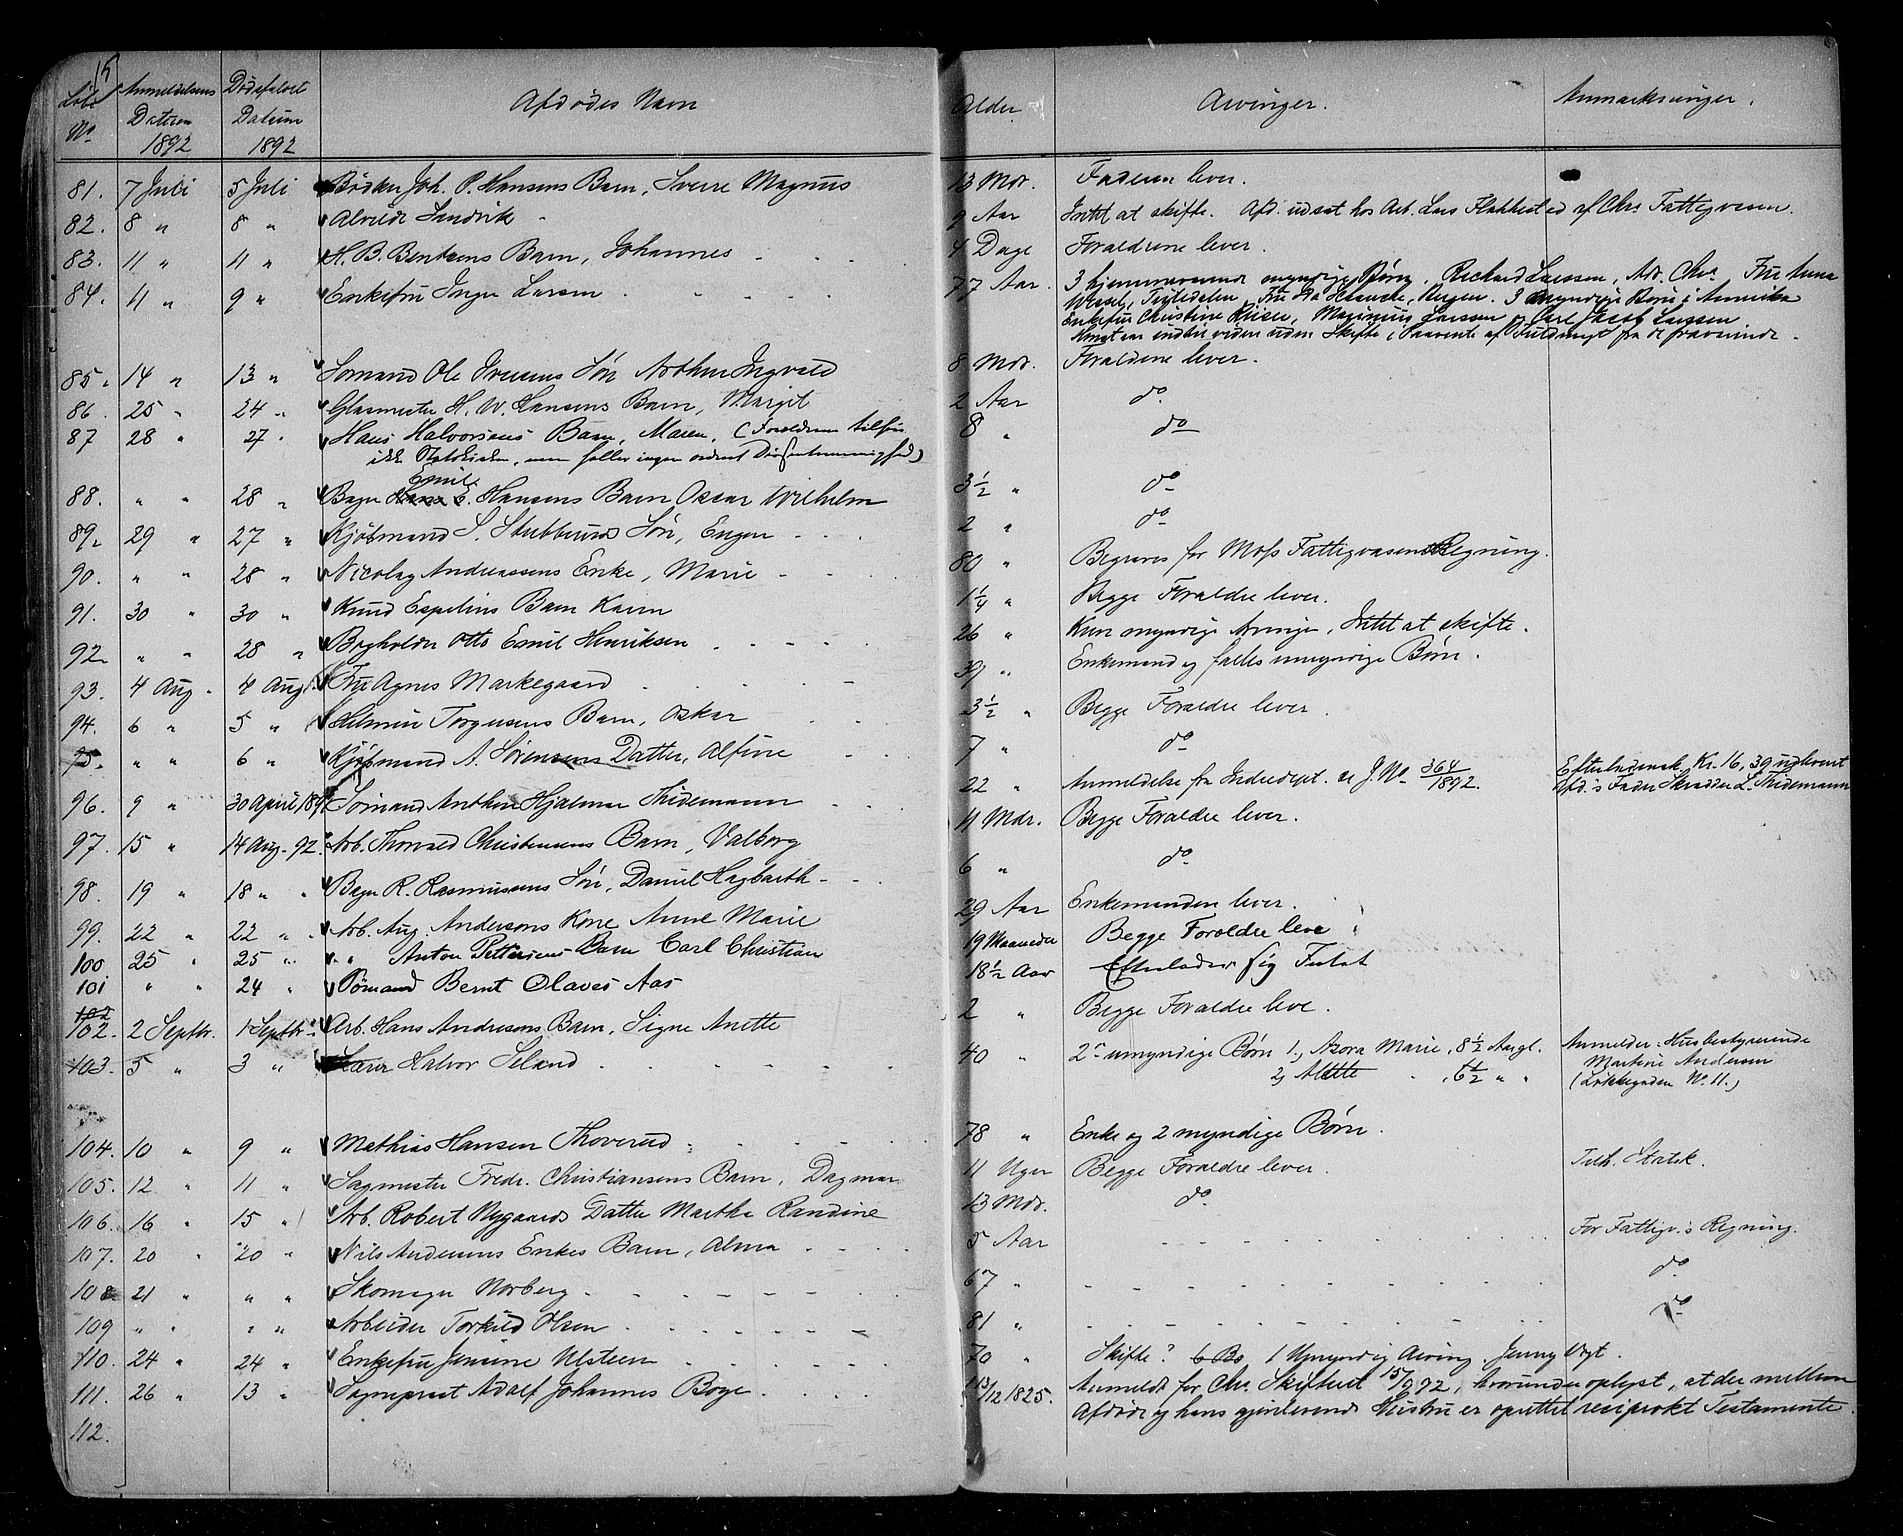 15
Løbe No. | Anmeldelsens Datum 1892 | Dødsfaldets Datum 1892 | Afdødes Navn | Alder | Arvinger. | Anmærkninger.
81. | 7 Juli | 5 Juli | Bødker Joh. P. Hansens Barn, Sverre Magnus | 13 Mdr. | Faderen lever.
82. | 8 " | 8 " | Alvilde Sandvik | 9 Aar | Intet at skifte. Afd. udsat hos Arb. Lars Flakkestad af Chr. Fattigvæsen.
83. | 11 " | 11 " | H. B. Bentzens Barn, Johannes | 4 Dage | Forældrene lever.
84. | 11 " | 9 " | Enkefru Inger Larsen | 77 Aar. | 3 hjemmeværende myndige Børn, Richard Larssen, Adr. Chr., Fru Anna
Wessel, Teglldalen, Fru Ida Hancke, Bergen. 3 myndige Børn i Amerika
Enkefru Christine Riise, Magnus Larssen og Carl Jacob Larssen
indtil videre uden Skifte i Paavente af Fuldmagt fra de fraværende.
85. | 14 " | 13 " | Sømand Ole Iversens Søn Arthur Ingvald | 8 Mdr. | Forældrene lever.
86. | 25 " | 24 " | Glasmester H. W. Hansens Barn, Margit | 2 Aar | do.
87 | 28 " | 27 " | Hans Halvorsens Barn, Maren, (Forældrene tilhører | 8 " | do
ikke Statskirken, men heller ingen ordnet Dissentermenighed)
88. | " " | 28 " | Bager Emil Hansens Barn Oscar Wilhelm | 3½ " | do
89. | 29 " | 27 " | Kjøbmand S. Stubberuds Søn, Eugen | 2 " | do
90. | " " | 28 " | Nicolay Andreassens Enke, Marie | 80 " | Begraves for Moss Fattigvæsens Regning.
91. | 30 " | 30 " | Knud Espelins Barn Karen | 1¼ " | Begge Forældre lever.
92. | " " | 28 " | Bogholder Otto Emil Henriksen | 26 " | Kun myndige Arvinger, Intet at skifte.
93. | 4 Aug. | 4 Aug. | Fru Agnes Markegaard | 39 " | Enkemand og fælles umyndige Børn.
94. | 6 " | 5 " | Hilmar Torgersens Barn, Oskar | 3½ " | Begge Forældre lever.
95. | " " | 6 " | Kjøbmand A. Sørensens Datter, Alfine | 7 " | do
96. | 9 " | 30 April 189 | Sømand Anthon Hjalmar Thidemann | 22 " | Anmeldelse fra Indredept. se J. No. 364/1892. | Efterladensk. Kr. 16,39 udleveret
Afd.s Fader Skrædder L. Thidemann
97. | 15 " | 14 Aug. 92. | Arb. Thorvald Christensens Barn, Valborg | 11 Mdr. | Begge Forældre lever.
98. | 19 " | 18 " | Bager R. Rasmussens Søn, Daniel Hagbarth | 6 " | do
99. | 22 " | 22 " | Arb. Aug. Andersens Kone Anne Marie | 29 Aar | Enkemanden lever.
100 | 25 " | 25 " | " Anton Pettersens Barn Carl Christian | 19 Maaneder | Begge Forældre leve
101 | " " | 24 " | Sømand Bernt Olaves Aas | 18½ Aar | Efterlader sig Intet
102
102. | 2 Septbr. | 1 Septbr. | Arb. Hans Andresens Barn, Signe Anette | 2 " | Begge Forældre leve.
103. | 5 " | 3 " | Lærer Halvor Seland | 40 " | 2 umyndige Børn 1, Azora Marie, 8½ Aar gl. | Anmelder: Husbestyrerinde
2, Alette . , 6½ " " | Martine Andersen
(Løkkegaden No. 11.)
104. | 10 " | 9 " | Mathias Hansen Thoverud | 78 " | Enke og 2 myndige Børn.
105. | 12 " | 11 " | Sagmester Fredr. Christiansens Barn, Dagmar | 11 Uger | Begge Forældre lever. | Tilh. Statsk.
106. | 16 " | 15 " | Arb. Robert Nygaards Datter Martha Randine | 13 Mdr. | do
107. | 20 " | 20 " | Nils Andersens Enkes Barn, Alma | 5 Aar | For Fattigv.s Regning.
108 | 21 " | " " | Skomager Norberg | 67 " | do
109 | " " | " " | Arbeider Torkild Olsen | 81 " | do
110. | 24 " | 24 " | Enkefru Jensine Ulsteen | 70 " | Skifte? 6 Bo 1 Umyndig Arving, Jenny Vogt.
111. | 26 " | 13 " | Sogneprest Adolf Johannes Boye | 13/12 1825. | Anmeldt for Chr. Skifteret 15/9 92, hvorunder oplyst, at der mellem
112. | Afdøde og hans gjenlevende Hustru er oprettet reciprokt Testamente.